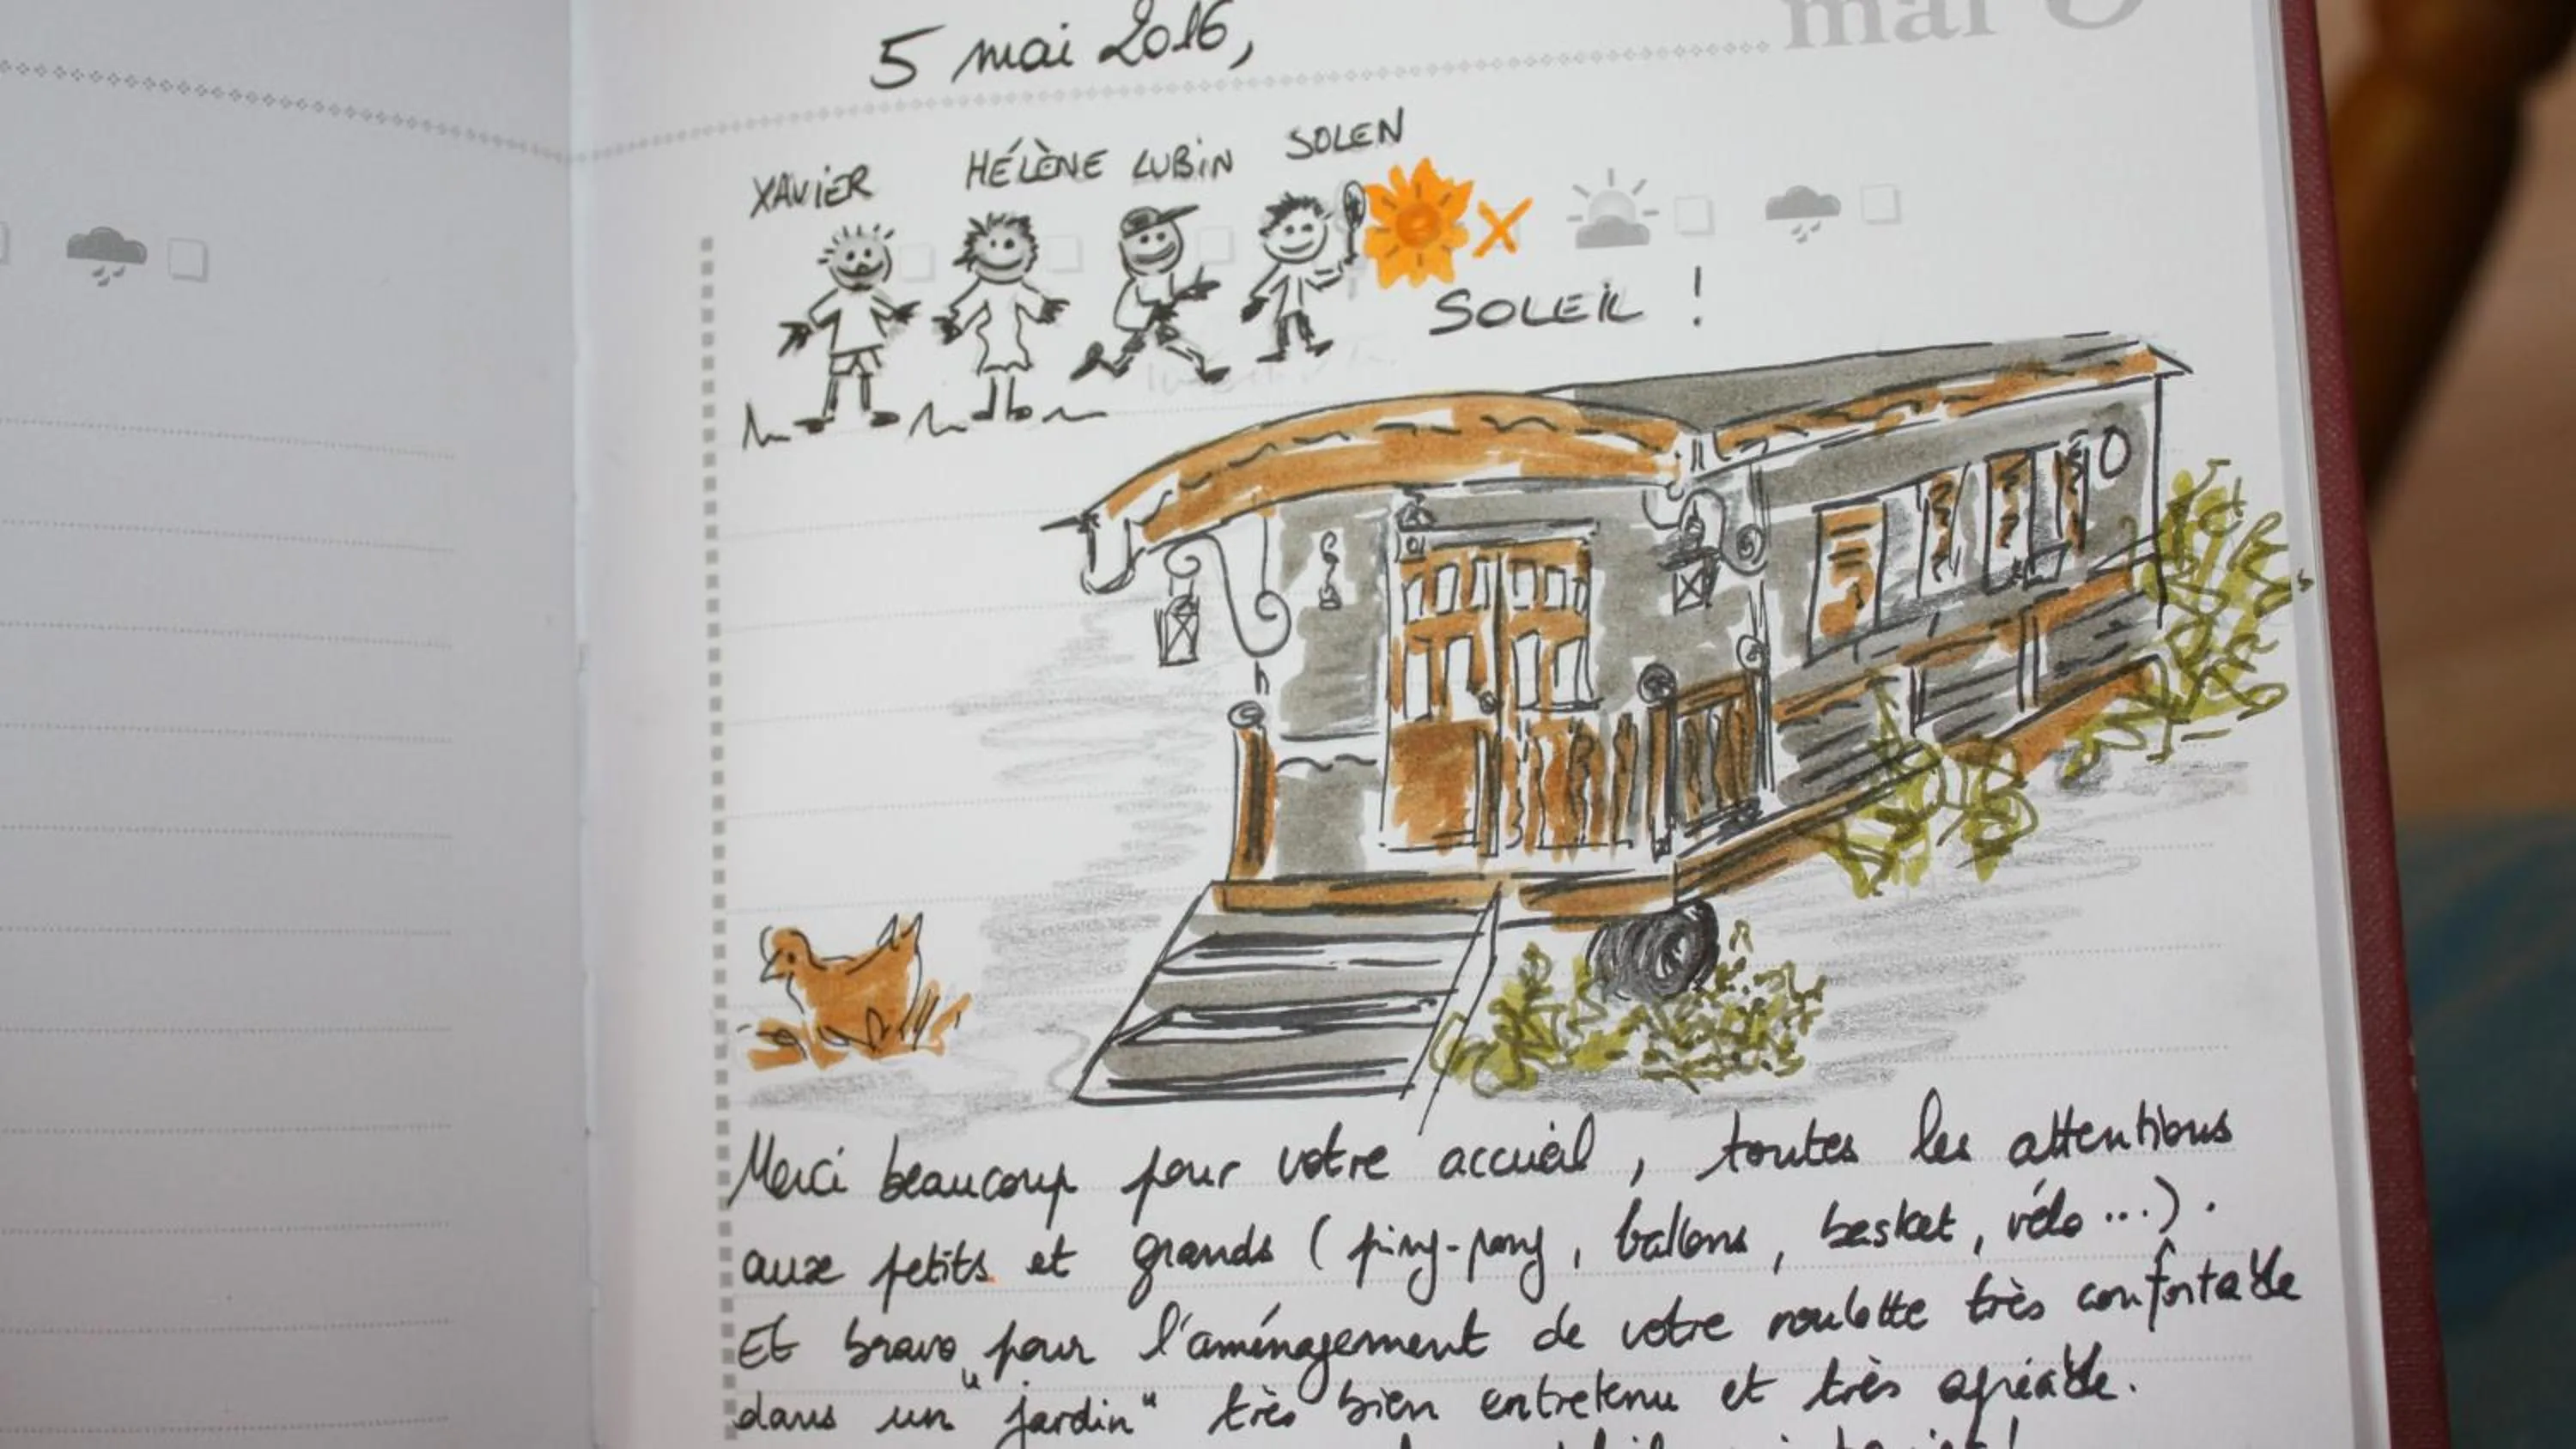 5 mai 2016,
mai
XAVIER HÉLÈNE LUBIN SOLEN
SOLEIL !
Merci beaucoup pour votre accueil, toutes les attentions
aux petits et grands (ping-pong, ballons, basket, vélo...).
Et bravo pour l'aménagement de votre roulotte très confortable
dans un "jardin" très bien entretenu et très agréable.